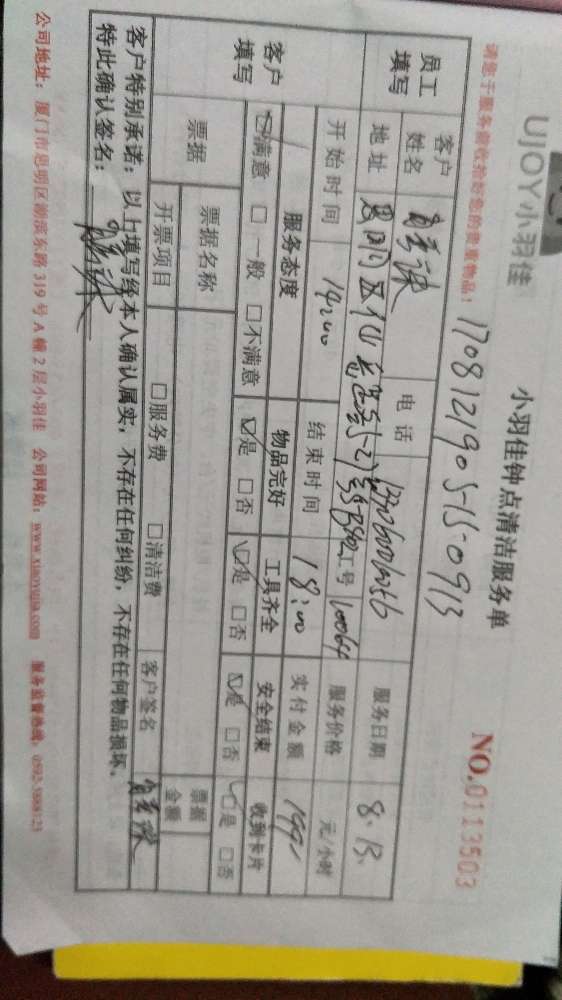 UJOY小羽佳
小羽佳钟点清洁服务单
请您于服务前收拾好您的贵重物品!
NO.0113503
1708121905-15-0913
员工填写
客户姓名
电话
服务日期 8.13.
地址 思明区
工号
服务价格 元/小时
开始时间 14:00 结束时间 18:00 实付金额
客户填写
服务态度 物品完好 工具齐全 安全结束 收到卡片
☑满意 □一般 □不满意 ☑是 □否 ☑是 □否 ☑是 □否 ☑是 □否
票据 票据名称 票据金额
开票项目 □服务费 □清洁费 客户签名
客户特别承诺:以上填写经本人确认属实,不存在任何纠纷,不存在任何物品损坏,
特此确认签名:
公司地址:厦门市思明区湖滨东路319号A幢2层小羽佳 公司网站:www.xiaoyujia.com 服务监督热线:0592-5988123